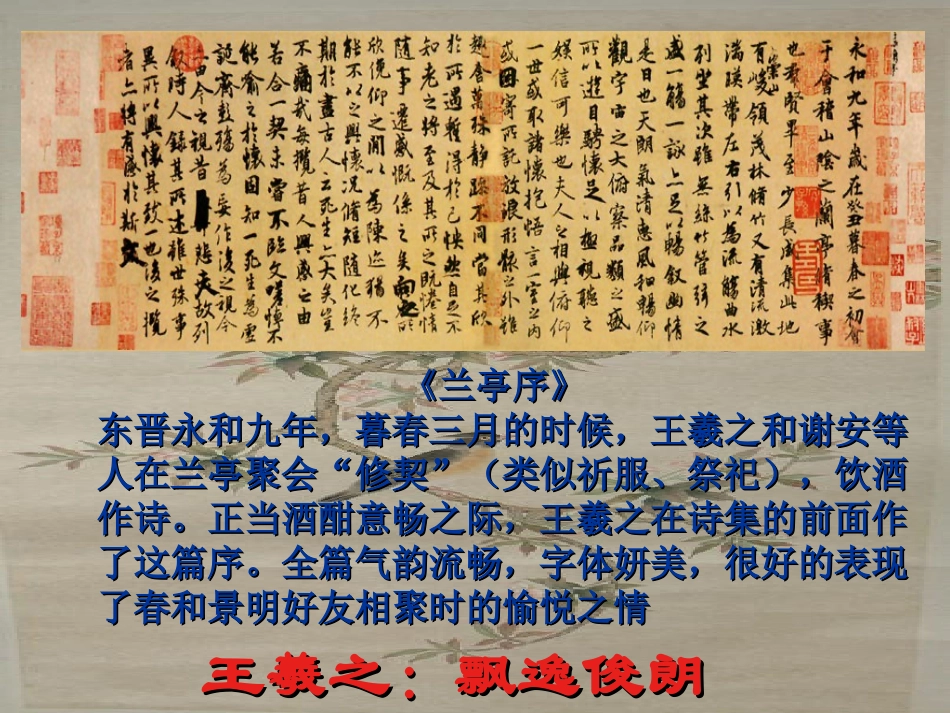 永和九年歲在癸丑暮春之初會
于會稽山陰之蘭亭脩稧事
也群賢畢至少長咸集此地
有崇山峻領茂林脩竹又有清流激
湍暎帶左右引以為流觴曲水
列坐其次雖無絲竹管弦之
盛一觴一詠亦足以暢敘幽情
是日也天朗氣清惠風和暢仰
觀宇宙之大俯察品類之盛
所以遊目騁懷足以極視聽之
娛信可樂也夫人之相與俯仰
一世或取諸懷抱悟言一室之內
或因寄所託放浪形骸之外雖
趣舍萬殊靜躁不同當其欣
於所遇蹔得於己怏然自足不
知老之將至及其所之既惓情
隨事遷感慨係之矣向之所
欣俛仰之閒以為陳迹猶不
能不以之興懷況脩短隨化終
期於盡古人云死生亦大矣豈
不痛哉每攬昔人興感之由
若合一契未嘗不臨文嗟悼不
能喻之於懷固知一死生為虛
誕齊彭殤為妄作後之視今
亦由今之視昔悲夫故列
敘時人錄其所述雖世殊事
異所以興懷其致一也後之攬
者亦將有感於斯文
《兰亭序》
东晋永和九年，暮春三月的时候，王羲之和谢安等
人在兰亭聚会“修契”（类似祈服、祭祀），饮酒
作诗。正当酒酣意畅之际，王羲之在诗集的前面作
了这篇序。全篇气韵流畅，字体妍美，很好的表现
了春和景明好友相聚时的愉悦之情
王羲之：飘逸俊朗